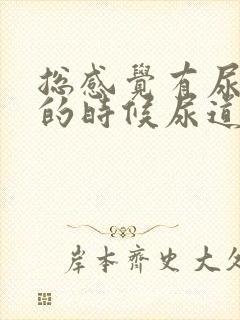 總感覺有尿
的時候尿道
岸本齊史大久